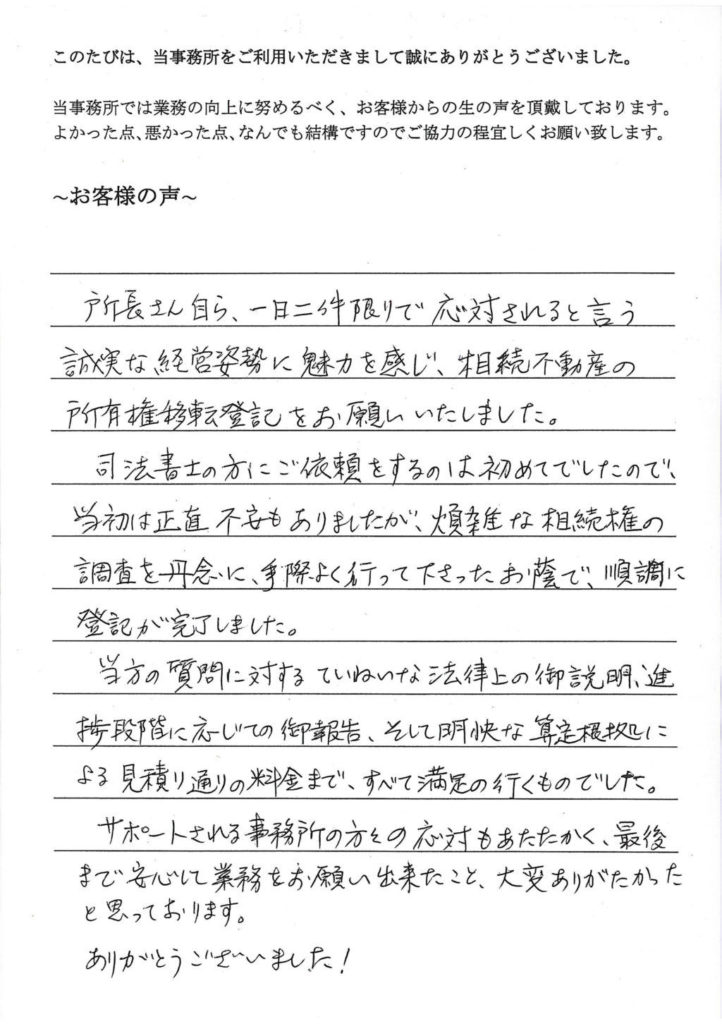 このたびは、当事務所をご利用いただきまして誠にありがとうございました。
当事務所では業務の向上に努めるべく、お客様からの生の声を頂戴しております。
よかった点、悪かった点、なんでも結構ですのでご協力の程宜しくお願い致します。
~お客様の声~
所長さん自ら、一日二件限りで応対されると言う
誠実な経営姿勢に魅力を感じ、相続不動産の
所有権移転登記をお願いいたしました。
司法書士の方にご依頼をするのは初めてでしたので、
当初は正直不安もありましたが、煩雑な相続権の
調査を丹念に、手際よく行って下さったお蔭で、順調に
登記が完了しました。
当方の質問に対するていねいな法律上の御説明、進
捗段階に応じての御報告、そして明快な算定根拠に
よる見積り通りの料金まで、すべて満足の行くものでした。
サポートされる事務所の方々の応対もあたたかく、最後
まで安心して業務をお願い出来たこと、大変ありがたかった
と思っております。
ありがとうございました!